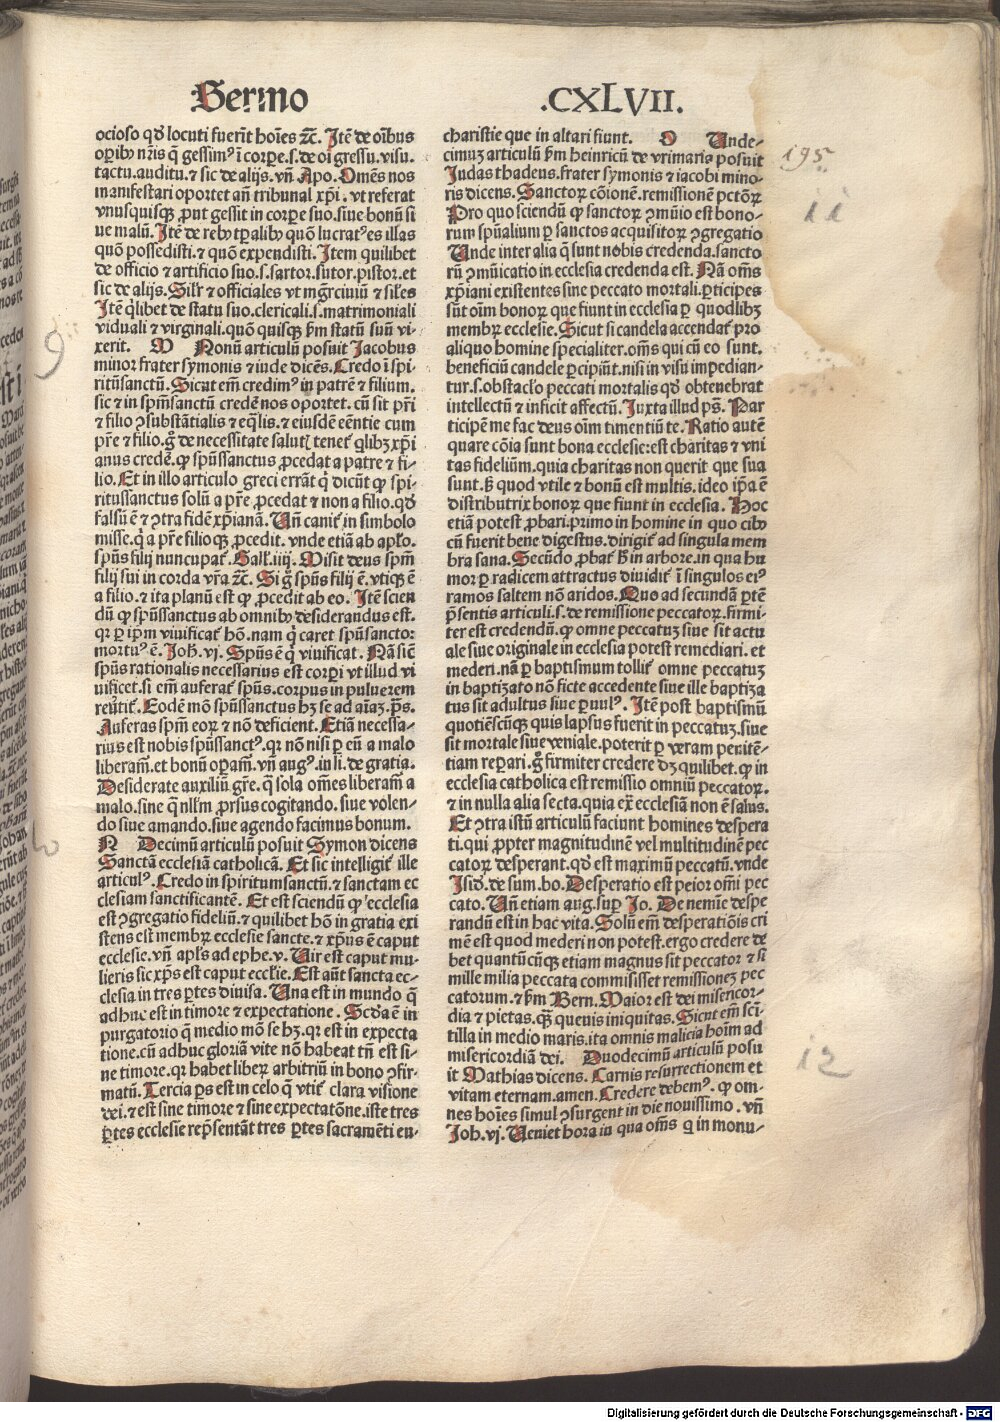 Sermo .CXLVII.
ocioso qđ locuti fuerīt hoīes ⁊c̄. Itē de oībus
oꝑibꝰ nr̄is q̄ gessimꝰ ī corꝑe.s.de oī gressu.visu.
tactu.auditu.⁊ sic de alijs.vñ Apo. Omēs nos
manifestari oportet añ tribunal xp̄i. vt referat
vnusquisqꝫ ꝓut gessit in corꝑe suo.siue bonū si
ue malū. Itē de rebꝰ tꝑalibꝰ quō lucratꝰ es illas
quō possedisti.⁊ quō expendisti. Item quilibet
de officio ⁊ artificio suo.s.sartor.sutor.pistor.et
sic de alijs. Silr̄ ⁊ officiales vt mgr̄ciuiū ⁊ siles
Itē q̄libet de statu suo.clericali.s.matrimoniali
viduali ⁊ virginali.quō quisqꝫ ẜm statū suū vi-
xerit. M Nonū articulū posuit Jacobus
minor frater symonis ⁊ iude dicēs. Credo ī spi-
ritūsanctū. Sicut em̄ credimꝰ in patrē ⁊ filium.
sic ⁊ in spm̄sanctū credēnos oportet. cū sit pr̄i
⁊ filio ꝯsubstātialis ⁊ eq̄lis.⁊ eiusdē eēntie cum
pr̄e ⁊ filio.g̊ de necessitate salutꝭ tenet᷑ qlibꝫ xp̄i
anus credē.ꝙ spūssanctus ꝓcedat a patre ⁊ fi-
lio. Et in illo articulo greci errāt q̇ dicūt ꝙ spi-
ritussanctus solū a pr̄e ꝓcedat ⁊ non a filio.qđ
falsū ē ⁊ ꝯtra fidē xp̄ianā. Uñ canit᷑ in simbolo
misse.q̇ a pr̄e filioqꝫ ꝓcedit.vnde etiā ab aplo.
spūs filij nuncupat᷑. Gall.iiij. Misit deus spm̄
filij sui in corda vr̄a ⁊c̄. Si g̊ spūs filij ē.vtiqꝫ ē
a filio.⁊ ita planū est ꝙ ꝓcedit ab eo. Itē scien
dū ꝙ spūssanctus ab omnibꝰ desiderandus est.
qꝛ ꝑ ip̄m viuificat᷑ hō.nam q̇ caret spūsancto:
mortuꝰ ē. Joh.vj. Spūs ē q̇ viuificat. Nā siē
spūs rationalis necessarius est corꝑi vt illud vi
uificet.si em̄ auferat᷑ spūs.corpus in puluerem
reūtit᷑. Eodē mō spūssanctus hꝫ se ad aīaꝫ.ps.
Auferas spm̄ eoꝝ ⁊ nō deficient. Etiā necessa-
rius est nobis spūssanctꝰ.qꝛ nō nisi ꝑ eū a malo
liberam᷑.et bonū oꝑam᷑.vñ augꝰ.in li.de gratia.
Desiderate auxiliū gr̄e.q̄ sola omēs liberam᷑ a
malo.sine q̄ nllm̄ ꝓrsus cogitando.siue volen-
do siue amando.siue agendo facimus bonum.
N Decimū articulū posuit Symon dicens
Sanctā ecclesiā catholicā. Et sic intelligit᷑ ille
articulꝰ. Credo in spiritumsanctū.⁊ sanctam ec
clesiam sanctificantē. Et est sciendū ꝙ ecclesia
est ꝯgregatio fideliū.⁊ quilibet hō in gratia exi
stens est membꝝ ecclesie sancte.⁊ xp̄us ē caput
ecclesie.vñ apls ad ephe.v. Uir est caput mu-
lieris sic xp̄s est caput eccl̄ie. Est aūt sancta ec-
clesia in tres ꝑtes diuisa. Una est in mundo q̄
adhuc est in timore ⁊ expectatione. Scda ē in
purgatorio q̄ medio mō se hꝫ.qꝛ est in expecta
tione.cū adhuc gloriā vite nō habeat tn̄ est si-
ne timore.qꝛ habet liberꝝ arbitriū in bono ꝯfir-
matū. Tercia ꝑs est in celo q̄ vtit᷑ clara visione
dei.⁊ est sine timore ⁊ sine expectatōne.iste tres
ꝑtes ecclesie repsentāt tres ꝑtes sacramēti eu-
charistie que in altari fiunt. O Unde-
cimuꝫ articulū ẜm heinricū de vrimaria posuit
Judas thadeus.frater symonis ⁊ iacobi mino-
ris dicens. Sanctoꝝ cōionē.remissionē pctōꝝ
Pro quo sciendū ꝙ sanctoꝝ ꝯmūio est bono-
rum spūalium ꝑ sanctos acquisitoꝝ ꝯgregatio
Unde inter alia q̄ sunt nobis credenda.sancto
rū ꝯmūicatio in ecclesia credenda est. Nā oms̄
xp̄iani existentes sine peccato mortali.ꝑticipes
sūt oīm bonoꝝ que fiunt in ecclesia ꝑ quodlibꝫ
membꝝ ecclesie. Sicut si candela accendat᷑ pro
aliquo homine specialiter.oms̄ qui cū eo sunt.
beneficiū candele ꝑcipiūt.nisi in visu impedian-
tur.s.obstaclo peccati mortalis qđ obtenebrat
intellectū ⁊ inficit affectū. Juxta illud ps. Par
ticipē me fac deus oīm timentiū te. Ratio autē
quare cōia sunt bona ecclesie:est charitas ⁊ vni
tas fideliūm.quia charitas non querit que sua
sunt.ꝫ quod vtile ⁊ bonū est multis.ideo ip̄a ē
distributrix bonoꝝ que fiunt in ecclesia. Hoc
etiā potest ꝓbari.primo in homine in quo cibꝰ
cū fuerit bene digestus.dirigit᷑ ad singula mem
bra sana. Secūdo ꝓbat᷑ ꝑ in arbore.in qua hu
mor ꝑ radicem attractus diuidit᷑ ī singulos eiꝰ
ramos saltem nō aridos. Quo ad secundā ꝑtē
p̄sentis articuli.s.de remissione peccatoꝝ.firmi-
ter est credendū.ꝙ omne peccatuꝫ siue sit actu
ale siue originale in ecclesia potest remediari.et
mederi.nā ꝑ baptismum tollit᷑ omne peccatuꝫ
in baptizato nō ficte accedente siue ille baptiza
tus sit adultus siue ꝑuulꝰ. Itē post baptismū
quotiēscūqꝫ quis lapsus fuerit in peccatuꝫ.siue
sit mortale siue veniale.poterit ꝑ veram penitē-
tiam repari.g̊ firmiter credere dꝫ quilibet.ꝙ in
ecclesia catholica est remissio omniū peccatoꝝ.
⁊ in nulla alia secta.quia ex̄ ecclesiā non ē salus.
Et ꝯtra istū articulū faciunt homines despera
ti.qui ꝓpter magnitudinē vel multitudinē pec
catoꝝ desperant.qđ est maximū peccatū.vnde
Isid.de sum.bo. Desperatio est peior omi pec
cato. Uñ etiam aug.sup Jo. De nemīe despe
randū est in hac vita. Solū em̄ desperatiōis cri
mē est quod mederi non potest.ergo credere de
bet quantūcūqꝫ etiam magnus sit peccator ⁊ si
mille milia peccata commisisset remissioneꝫ pec
catorum.⁊ ẜm Bern. Maior est dei misericor-
dia ⁊ pietas.qꝫ queuis iniquitas. Sicut em̄ scī-
tilla in medio maris.ita omnis malicia hoīm ad
misericordiā dei. Duodecimū articulū posu
it Mathias dicens. Carnis resurrectionem et
vitam eternam.amen. Credere debemꝰ.ꝙ om-
nes hoīes simul ꝯsurgent in die nouissimo.vñ
Joh.vj. Ueniet hora in qua oms̄ q̇ in monu-
195
11
12
9
Digitalisierung gefördert durch die Deutsche Forschungsgemeinschaft - DFG